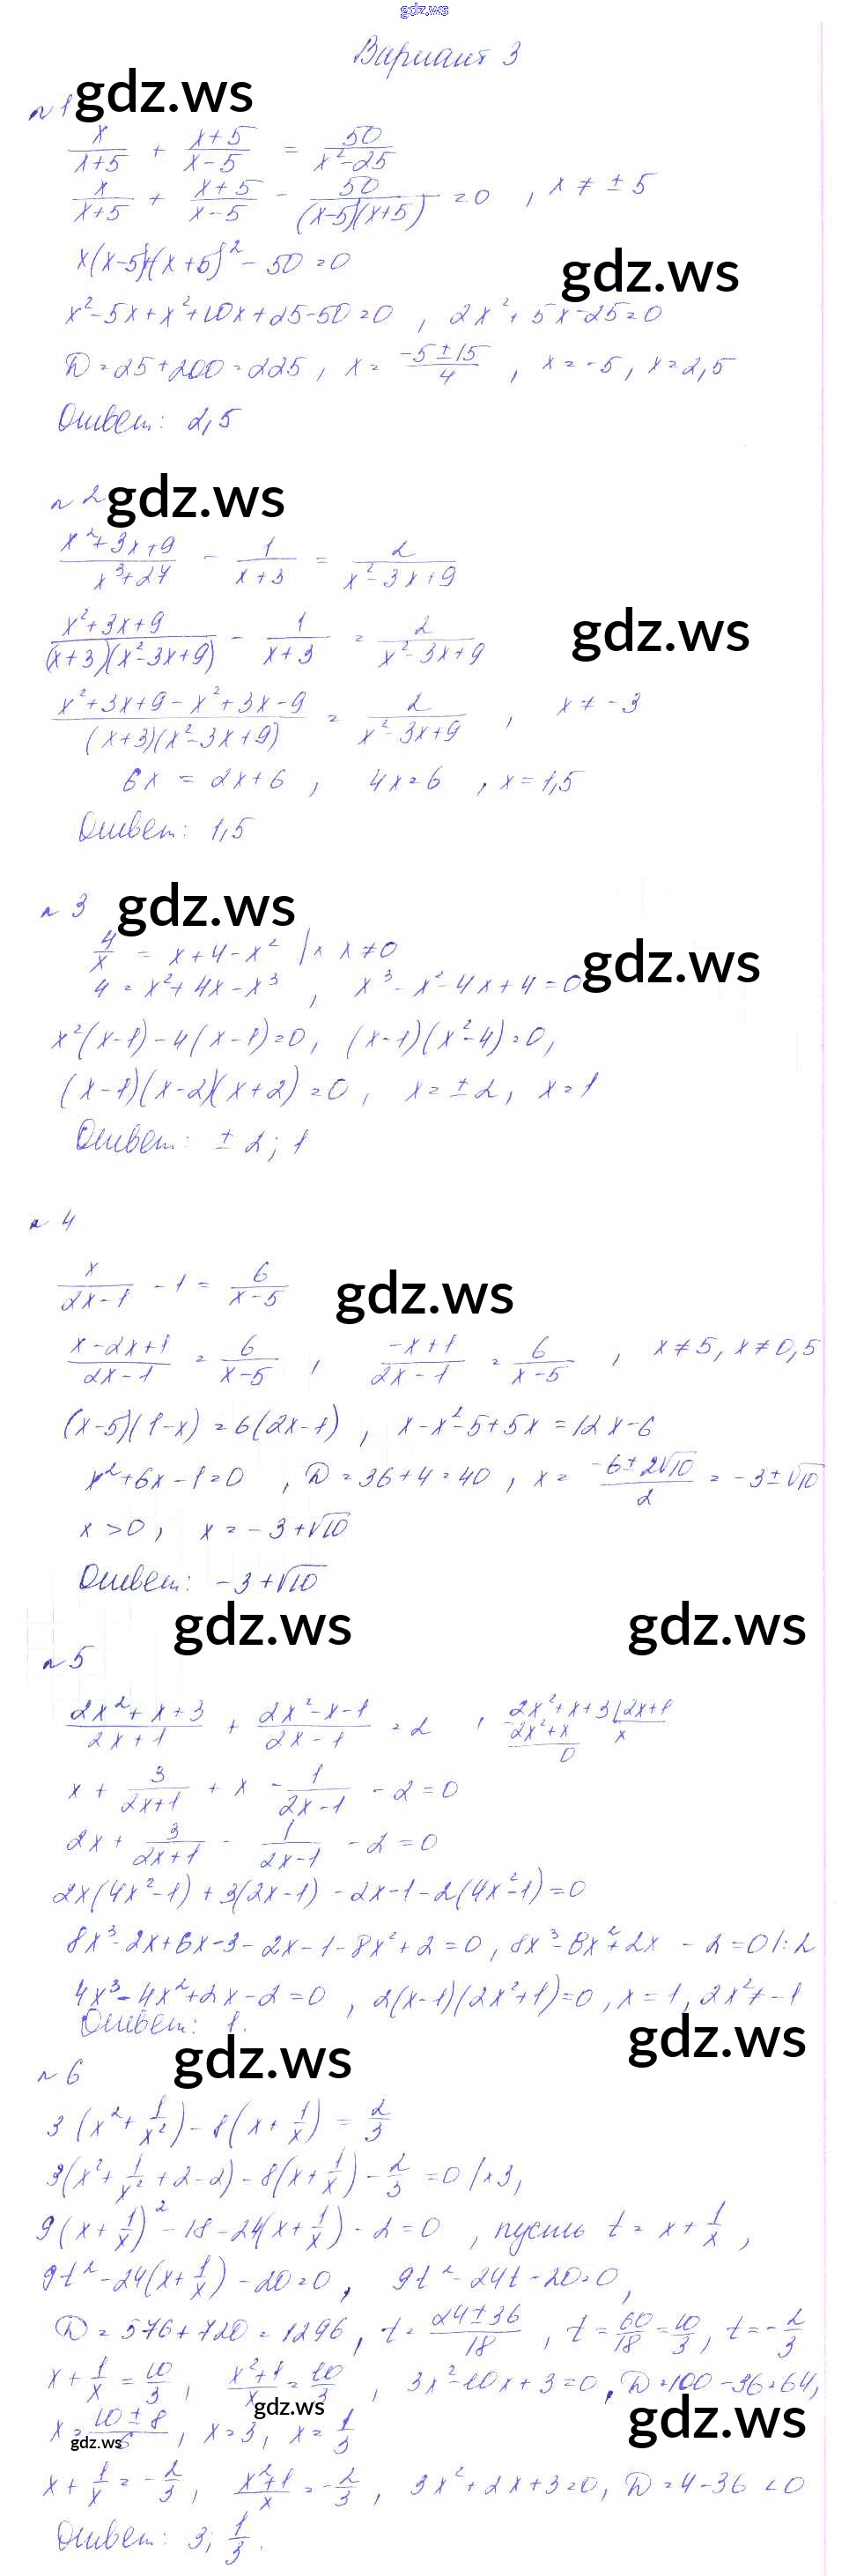 gdz.ws
Вариант 3
n 1 gdz.ws
x/(x+5) + (x+5)/(x-5) = 50/(x²-25)
x/(x+5) + (x+5)/(x-5) - 50/((x-5)(x+5)) = 0 , x ≠ ± 5
x(x-5)+(x+5)² - 50 = 0
gdz.ws
x²-5x+x²+10x+25-50=0 , 2x²+5x-25=0
D=25+200=225, x = (-5±15)/4 , x=-5, x=2,5
Ответ: 2,5
n 2 gdz.ws
(x²+3x+9)/(x³+27) - 1/(x+3) = 2/(x²-3x+9)
(x²+3x+9)/((x+3)(x²-3x+9)) - 1/(x+3) = 2/(x²-3x+9)
gdz.ws
(x²+3x+9-x²+3x-9)/((x+3)(x²-3x+9)) = 2/(x²-3x+9) , x ≠ -3
6x = 2x+6 , 4x=6 , x=1,5
Ответ: 1,5
n 3 gdz.ws
4/x = x+4-x² |×x x≠0
gdz.ws
4 = x²+4x-x³ , x³-x²-4x+4=0
x²(x-1)-4(x-1)=0, (x-1)(x²-4)=0,
(x-1)(x-2)(x+2)=0, x=±2, x=1
Ответ: ±2; 1
n 4
x/(2x-1) - 1 = 6/(x-5)
gdz.ws
(x-2x+1)/(2x-1) = 6/(x-5) , (-x+1)/(2x-1) = 6/(x-5) , x≠5, x≠0,5
(x-5)(1-x)=6(2x-1) , x-x²-5+5x=12x-6
x²+6x-1=0 , D=36+4=40, x = (-6±2√10)/2 = -3±√10
x>0, x=-3+√10
Ответ: -3+√10
gdz.ws gdz.ws
n 5
(2x²+x+3)/(2x+1) + (2x²-x-1)/(2x-1) = 2 , 2x²+x+3 | 2x+1
2x²+x x
0
x + 3/(2x+1) + x - 1/(2x-1) - 2 = 0
2x + 3/(2x+1) - 1/(2x-1) - 2 = 0
2x(4x²-1)+3(2x-1)-2x-1-2(4x²-1)=0
8x³-2x+6x-3-2x-1-8x²+2=0, 8x³-8x²+2x-2=0 |:2
4x³-4x²+2x-2=0 , 2(x-1)(2x²+1)=0, x=1, 2x²≠-1
Ответ: 1.
gdz.ws gdz.ws
n 6
3(x²+1/x²)-8(x+1/x) = 2/3
3(x²+1/x²+2-2)-8(x+1/x)-2/3=0 |×3,
9(x+1/x)²-18-24(x+1/x)-2=0 , пусть t=x+1/x ,
9t²-24(x+1/x)-20=0, 9t²-24t-20=0,
D=576+720=1296, t=(24±36)/18 , t=60/18=10/3, t=-2/3
x+1/x=10/3, (x²+1)/x=10/3 , 3x²-10x+3=0, D=100-36=64,
gdz.ws
x=(10±8)/6 , x=3, x=1/3
gdz.ws gdz.ws
x+1/x=-2/3, (x²+1)/x=-2/3 , 3x²+2x+3=0, D=4-36<0
Ответ: 3; 1/3.